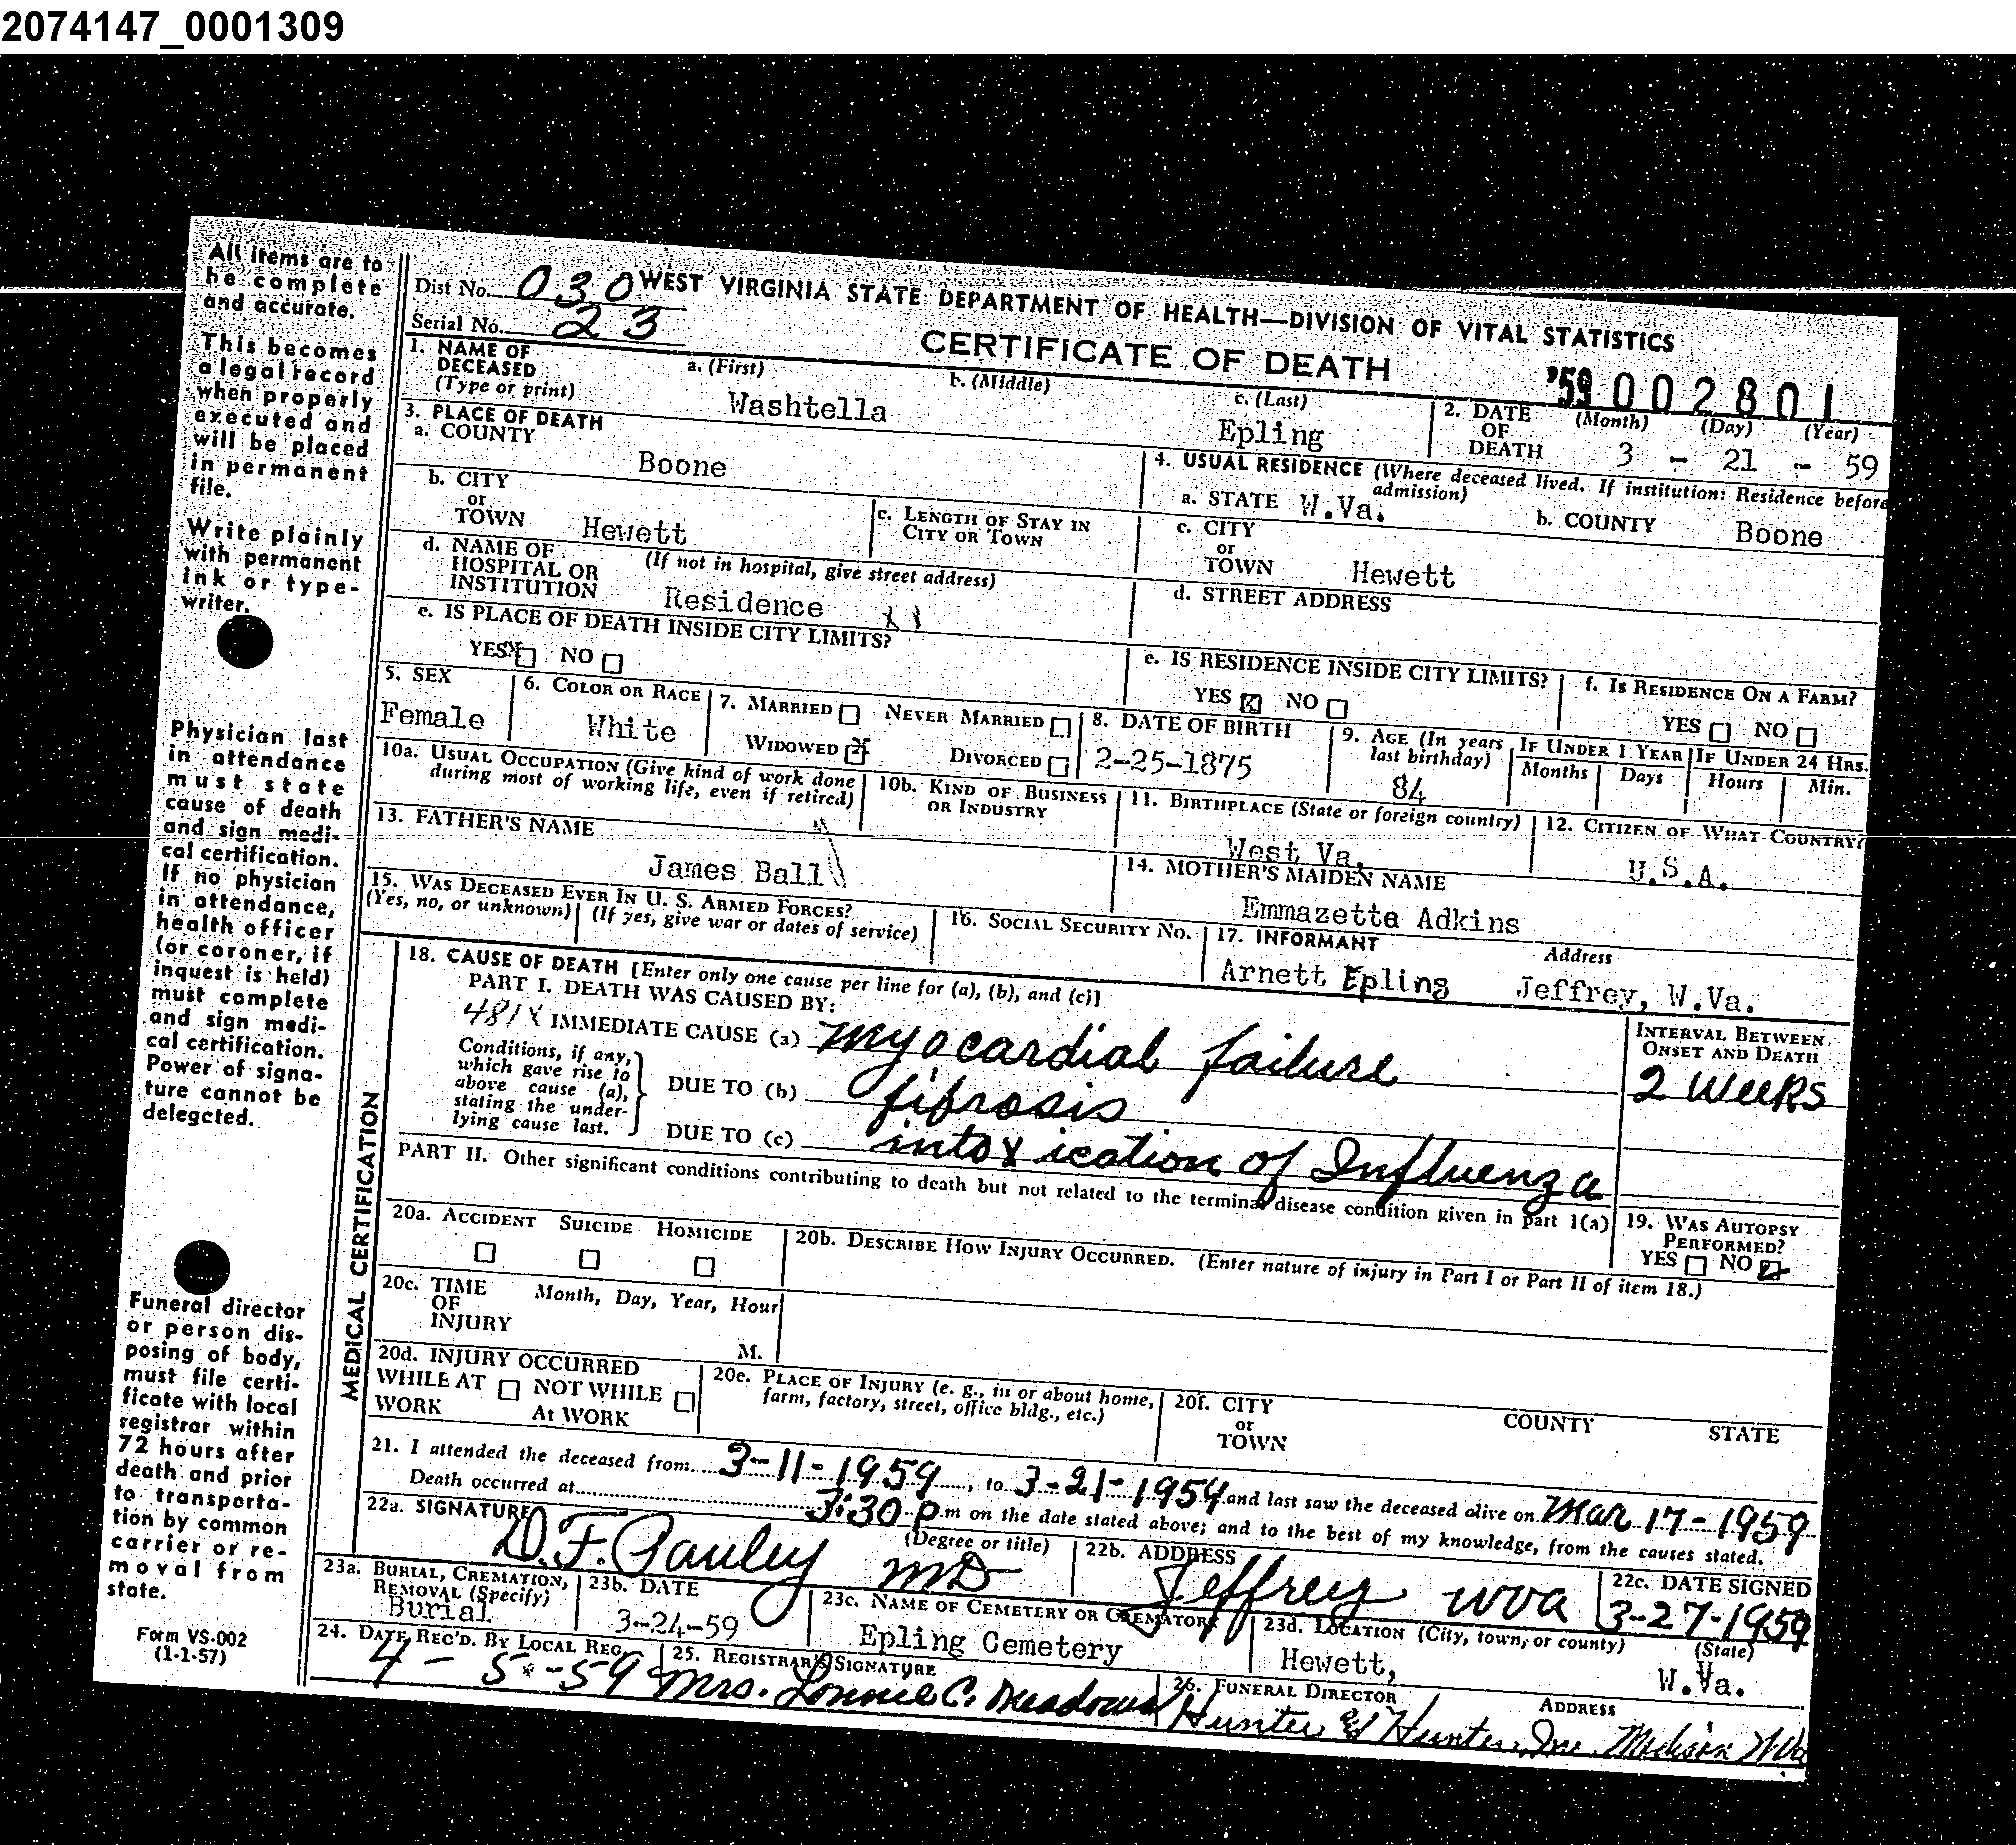 2074147_0001309
All items are to
be complete
and accurate.
This becomes
a legal record
when properly
executed and
will be placed
in permanent
file.
Write plainly
with permanent
ink or type-
writer.
Physician last
in attendance
must state
cause of death
and sign medi-
cal certification.
If no physician
in attendance,
health officer
(or coroner, if
inquest is held)
must complete
and sign medi-
cal certification.
Power of signa-
ture cannot be
delegated.
Funeral director
or person dis-
posing of body,
must file certi-
ficate with local
registrar within
72 hours after
death and prior
to transporta-
tion by common
carrier or re-
moval from
state.
Form VS-002
(1-1-57)
Dist No. 030 WEST VIRGINIA STATE DEPARTMENT OF HEALTH—DIVISION OF VITAL STATISTICS
Serial No. 23
CERTIFICATE OF DEATH
'59 002801
1. NAME OF DECEASED (Type or print) a. (First) b. (Middle) c. (Last)
Washtella Epling
2. DATE OF DEATH (Month) (Day) (Year)
3 - 21 - 59
3. PLACE OF DEATH
a. COUNTY Boone
4. USUAL RESIDENCE (Where deceased lived. If institution: Residence before admission)
a. STATE W.Va. b. COUNTY Boone
b. CITY or TOWN Hewett
c. LENGTH OF STAY IN CITY OR TOWN
c. CITY or TOWN Hewett
d. NAME OF HOSPITAL OR INSTITUTION (If not in hospital, give street address)
Residence
d. STREET ADDRESS
e. IS PLACE OF DEATH INSIDE CITY LIMITS?
YES X NO
e. IS RESIDENCE INSIDE CITY LIMITS?
YES X NO
f. IS RESIDENCE ON A FARM?
YES NO
5. SEX Female
6. COLOR OR RACE White
7. MARRIED NEVER MARRIED
WIDOWED X DIVORCED
8. DATE OF BIRTH 2-25-1875
9. AGE (In years last birthday) 84
IF UNDER 1 YEAR Months Days
IF UNDER 24 HRS. Hours Min.
10a. USUAL OCCUPATION (Give kind of work done during most of working life, even if retired)
10b. KIND OF BUSINESS OR INDUSTRY
11. BIRTHPLACE (State or foreign country) West Va.
12. CITIZEN OF WHAT COUNTRY? U.S.A.
13. FATHER'S NAME
James Ball
14. MOTHER'S MAIDEN NAME
Emmazetta Adkins
15. WAS DECEASED EVER IN U. S. ARMED FORCES?
(Yes, no, or unknown) (If yes, give war or dates of service)
16. SOCIAL SECURITY NO.
17. INFORMANT Address
Arnett Epling Jeffrey, W.Va.
MEDICAL CERTIFICATION
18. CAUSE OF DEATH [Enter only one cause per line for (a), (b), and (c)]
PART I. DEATH WAS CAUSED BY:
481X IMMEDIATE CAUSE (a) Myocardial failure
INTERVAL BETWEEN ONSET AND DEATH
2 Weeks
Conditions, if any, which gave rise to above cause (a), stating the under-lying cause last.
DUE TO (b) fibrosis
DUE TO (c) intoxication of Influenza
PART II. Other significant conditions contributing to death but not related to the terminal disease condition given in part 1(a)
19. WAS AUTOPSY PERFORMED?
YES NO X
20a. ACCIDENT SUICIDE HOMICIDE
20b. DESCRIBE HOW INJURY OCCURRED. (Enter nature of injury in Part I or Part II of item 18.)
20c. TIME OF INJURY Month, Day, Year, Hour
M.
20d. INJURY OCCURRED
WHILE AT WORK NOT WHILE At WORK
20e. PLACE OF INJURY (e. g., in or about home, farm, factory, street, office bldg., etc.)
20f. CITY or TOWN COUNTY STATE
21. I attended the deceased from 3-11-1959, to 3-21-1959 and last saw the deceased alive on Mar 17-1959
Death occurred at 3:30 p.m on the date stated above; and to the best of my knowledge, from the causes stated.
22a. SIGNATURE (Degree or title)
D.F. Pauley MD
22b. ADDRESS
Jeffrey WVa
22c. DATE SIGNED
3-27-1959
23a. BURIAL, CREMATION, REMOVAL (Specify)
Burial
23b. DATE
3-24-59
23c. NAME OF CEMETERY OR CREMATORY
Epling Cemetery
23d. LOCATION (City, town, or county) (State)
Hewett, W.Va.
24. DATE REC'D. BY LOCAL REG.
4-5-59
25. REGISTRAR'S SIGNATURE
Mrs. Lonnie C. Meadows
26. FUNERAL DIRECTOR ADDRESS
Hunter & Hunter, Inc. Madison W.Va